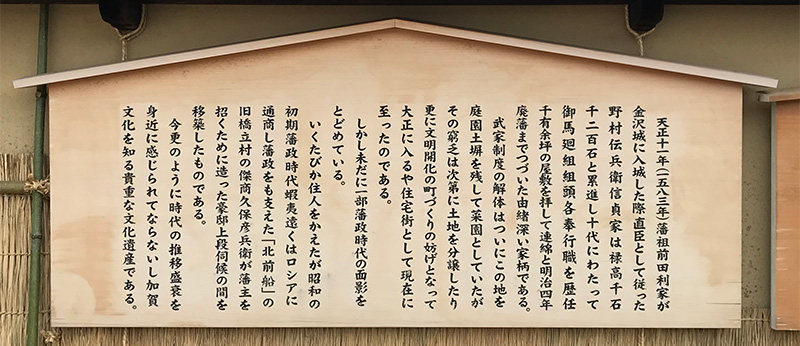 天正十一年（一五八三年）藩祖前田利家が
金沢城に入城した際直臣として従った
野村伝兵衛信貞家は禄高千石
千二百石と累進し十代にわたって
御馬廻組組頭各奉行職を歴任
千有余坪の屋敷を拝して連綿と明治四年
廃藩までつづいた由緒深い家柄である。
武家制度の解体はついにこの地を
庭園土塀を残して菜園としていたが
その窮乏は次第に土地を分譲したり
更に文明開化の町づくりの妨げとなって
大正に入るや住宅街として現在に
至ったのである。
しかし未だに一部藩政時代の面影を
とどめている。
いくたびか住人をかえたが昭和の
初期藩政時代蝦夷遠くはロシアに
通商し藩政をも支えた「北前船」の
旧橋立村の傑商久保彦兵衛が藩主を
招くために造った豪邸上段伺候の間を
移築したものである。
今更のように時代の推移盛衰を
身近に感じられてならないし加賀
文化を知る貴重な文化遺産である。